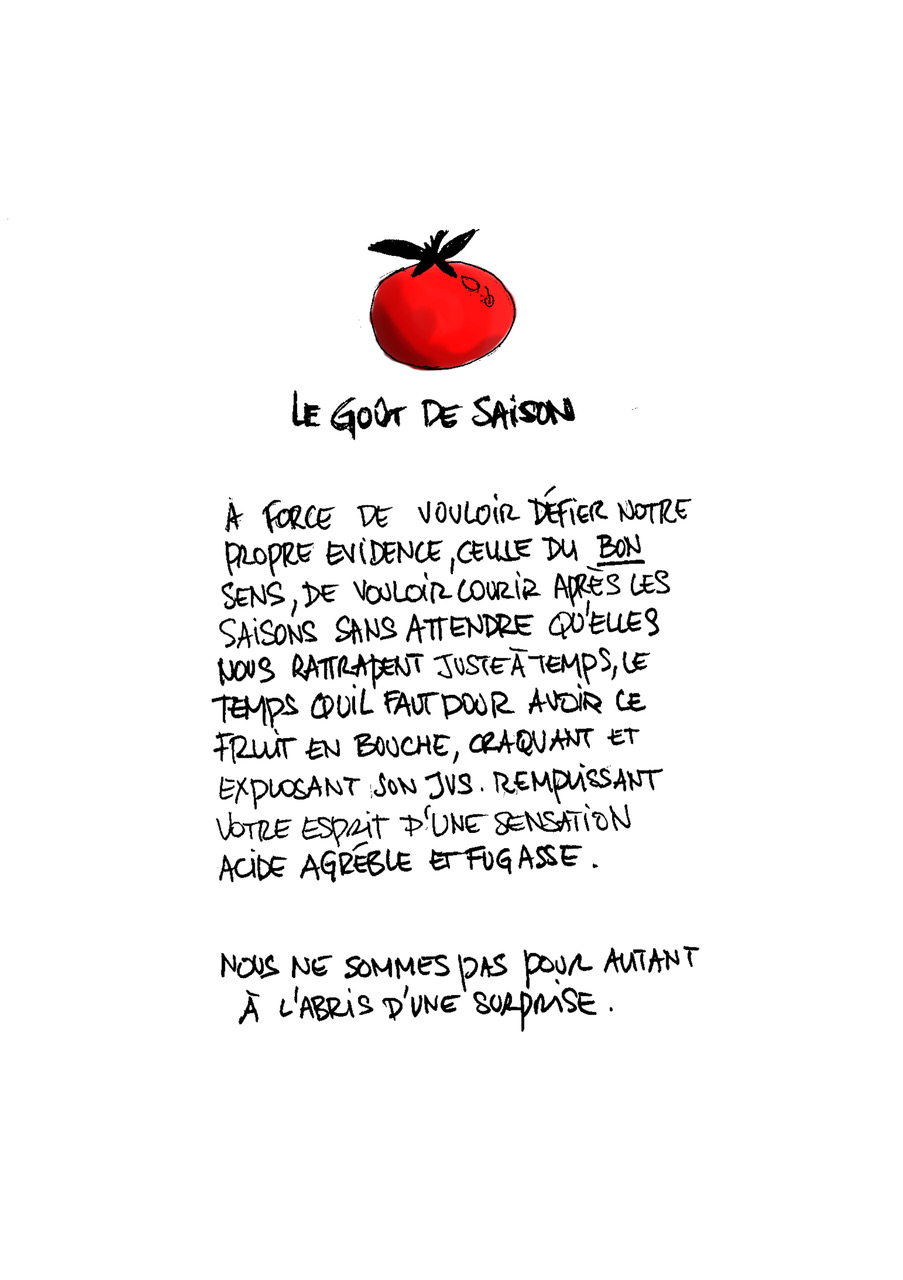 LE GOÛT DE SAISON
À FORCE DE VOULOIR DÉFIER NOTRE
PROPRE EVIDENCE, CELLE DU BON
SENS, DE VOULOIR COURIR APRÈS LES
SAISONS SANS ATTENDRE QU'ELLES
NOUS RATTRAPENT JUSTE À TEMPS, LE
TEMPS QU'IL FAUT POUR AVOIR CE
FRUIT EN BOUCHE, CRAQUANT ET
EXPLOSANT SON JUS. REMPLISSANT
VOTRE ESPRIT D'UNE SENSATION
ACIDE AGRÉBLE ET FUGASSE.
NOUS NE SOMMES PAS POUR AUTANT
À L'ABRIS D'UNE SURPRISE.